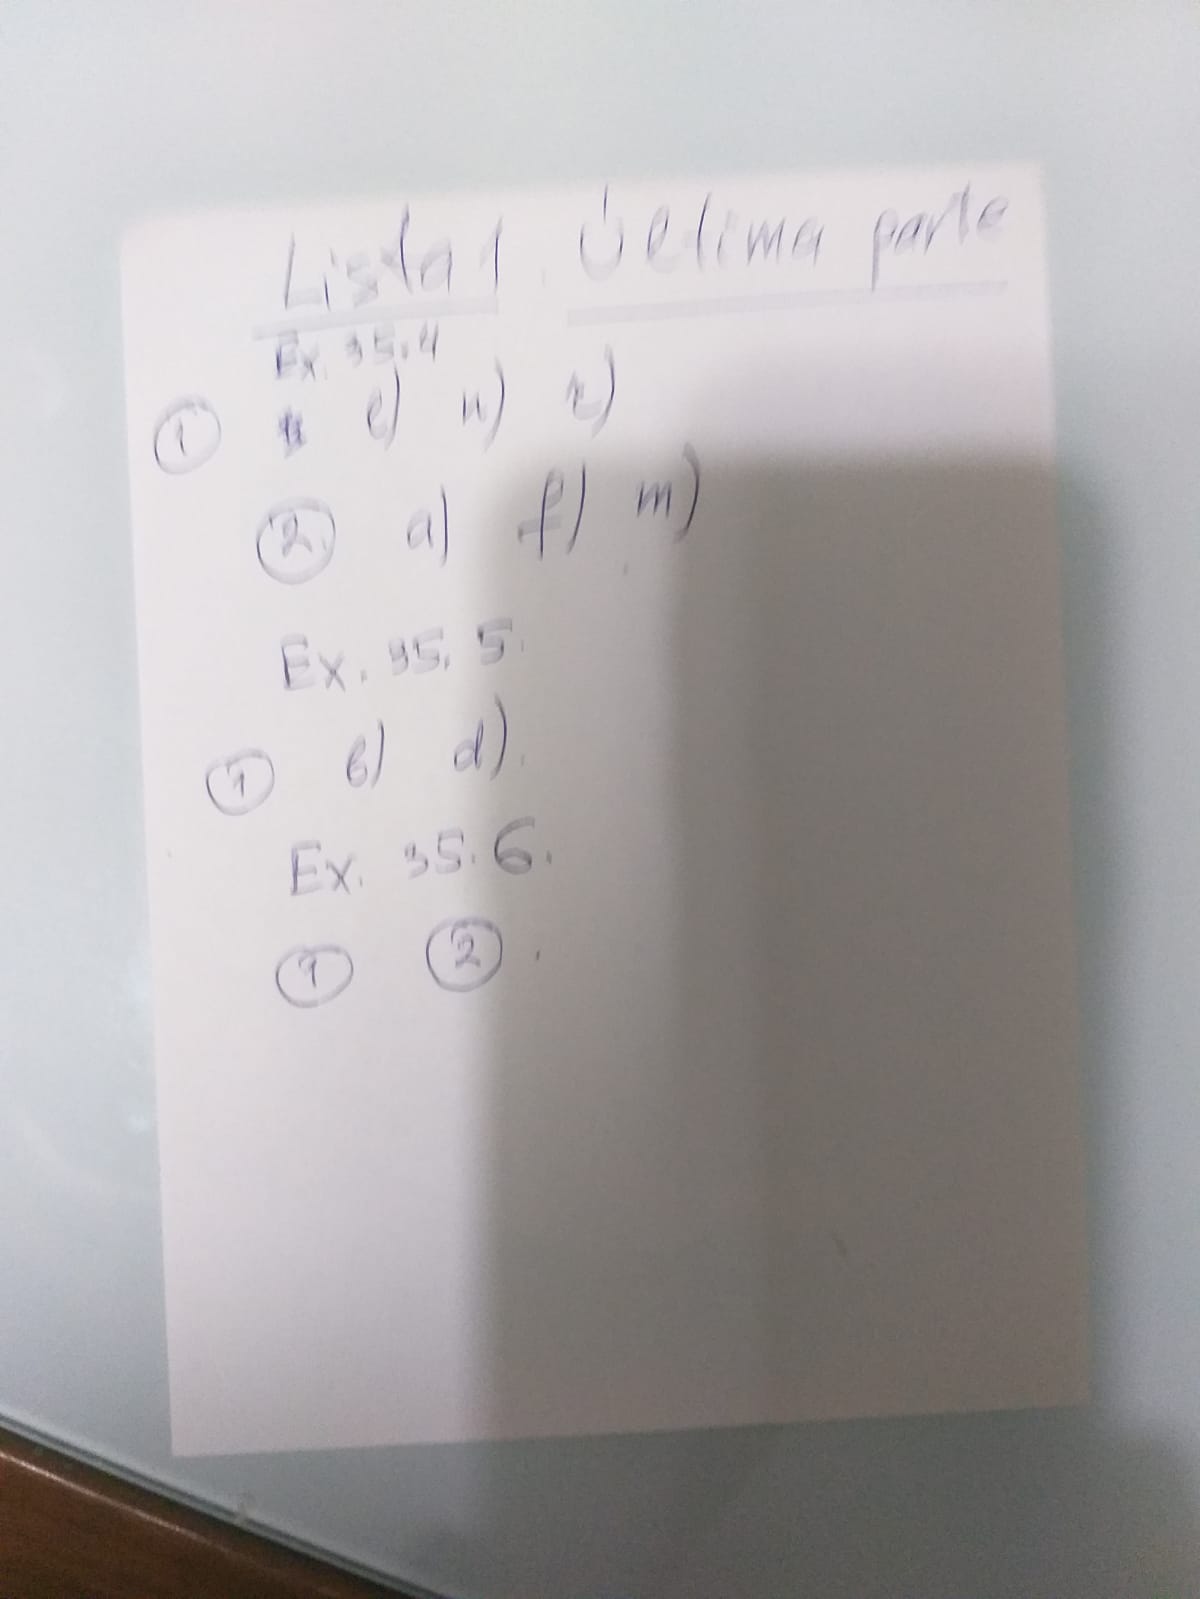 Lista 1. Última parte
Ex. 35.4
① e) n) r)
② a) f) m)
Ex. 35.5.
① b) d).
Ex. 35.6.
① ②.